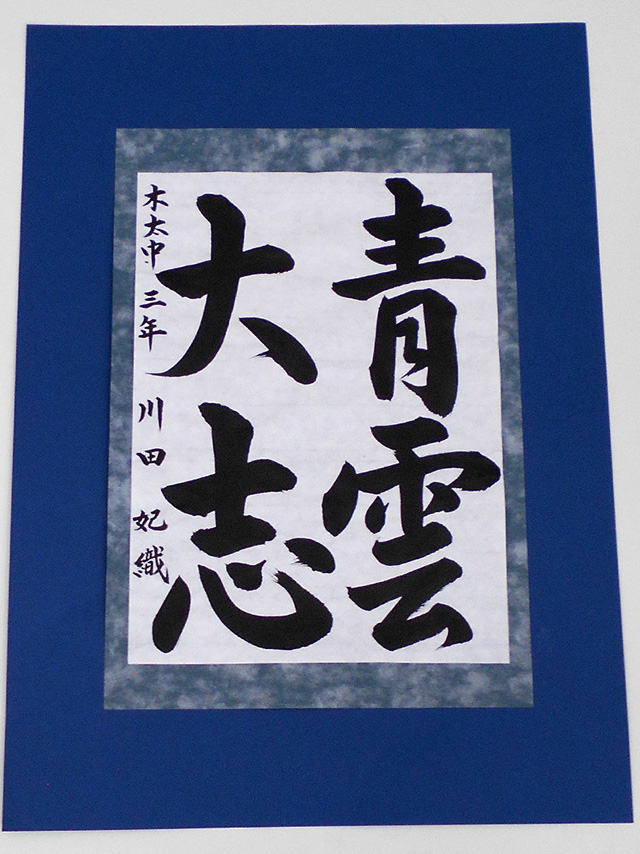 青雲
大志
木太中 三年 川田 妃織